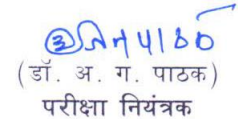 (डॉ. अ. ग. पाठक)
परीक्षा नियंत्रक